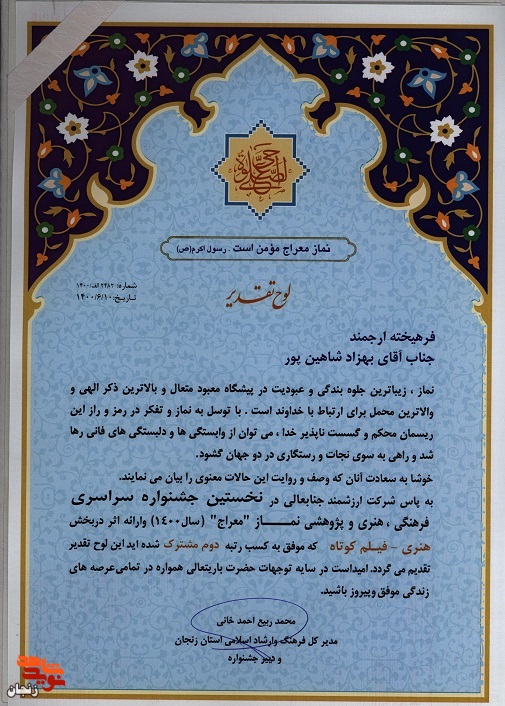 حی علی الصلوة
نماز معراج مؤمن است . رسول اکرم(ص)
لوح تقدیر
شماره: ۲۴۸۲/الف/۱۴۰۰
تاریخ: ۱۴۰۰/۶/۱۰
فرهیخته ارجمند
جناب آقای بهزاد شاهین پور
نماز ، زیباترین جلوه بندگی و عبودیت در پیشگاه معبود متعال و بالاترین ذکر الهی و
والاترین محمل برای ارتباط با خداوند است . با توسل به نماز و تفکر در رمز و راز این
ریسمان محکم و گسست ناپذیر خدا ، می توان از وابستگی ها و دلبستگی های فانی رها
شد و راهی به سوی نجات و رستگاری در دو جهان گشود.
خوشا به سعادت آنان که وصف و روایت این حالات معنوی را بیان می نمایند.
به پاس شرکت ارزشمند جنابعالی در نخستین جشنواره سراسری
فرهنگی ، هنری و پژوهشی نمــاز "معراج" (سال۱۴۰۰) وارائه اثر دربخش
هنری - فیلم کوتاه که موفق به کسب رتبه دوم مشترک شده اید این لوح تقدیر
تقدیم می گردد. امیداست در سایه توجهات حضرت باریتعالی همواره در تمامی عرصه های
زندگی موفق وپیروز باشید.
محمد ربیع احمد خانی
مدیر کل فرهنگ وارشاد اسلامی استان زنجان
و دبیر جشنواره
نوید شاهد
زنجان